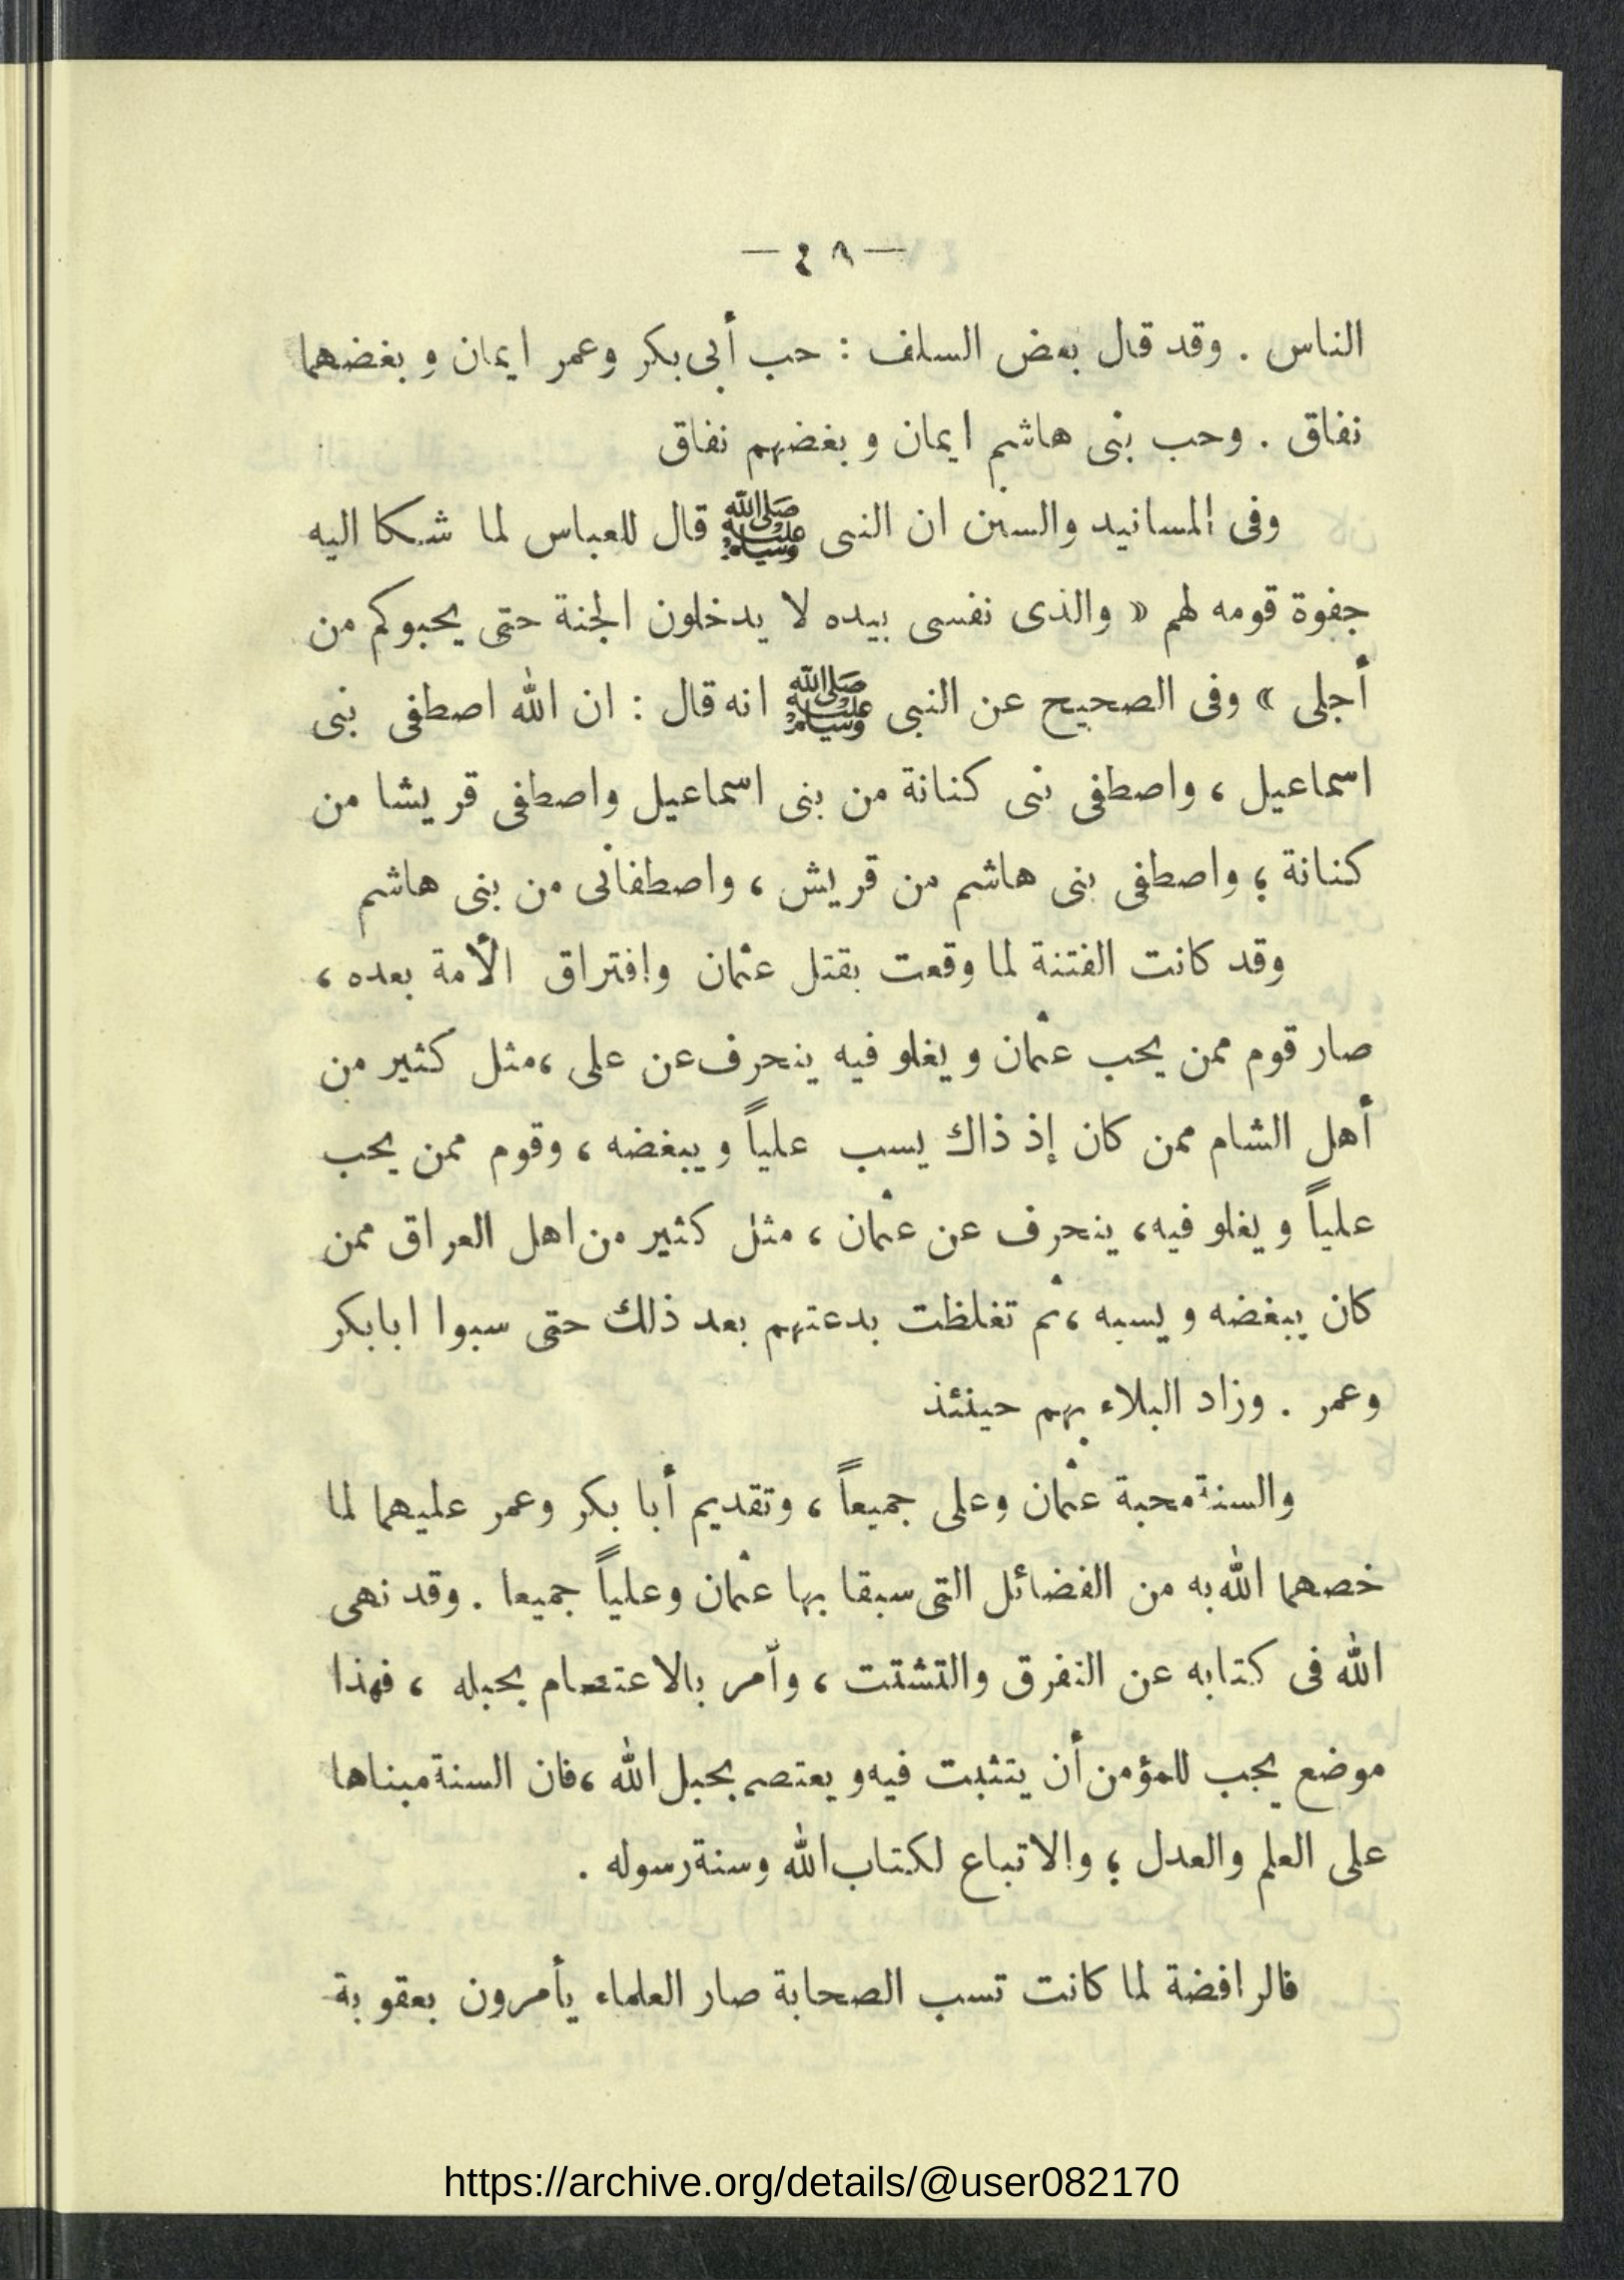 — ٤٨ —
الناس . وقد قال بعض السلف : حب أبى بكر وعمر ايمان وبغضهما
نفاق . وحب بنى هاشم ايمان وبغضهم نفاق
وفى المسانيد والسنن ان النبى ﷺ قال للعباس لما شكا اليه
جفوة قومه لهم « والذى نفسى بيده لا يدخلون الجنة حتى يحبوكم من
أجلى » وفى الصحيح عن النبى ﷺ انه قال : ان الله اصطفى بنى
اسماعيل ، واصطفى بنى كنانة من بنى اسماعيل واصطفى قريشا من
كنانة ؛ واصطفى بنى هاشم من قريش ، واصطفانى من بنى هاشم
وقد كانت الفتنة لما وقعت بقتل عثمان وافتراق الأمة بعده ،
صار قوم ممن يحب عثمان ويغلو فيه ينحرف عن على ، مثل كثير من
أهل الشام ممن كان إذ ذاك يسب علياً ويبغضه ، وقوم ممن يحب
علياً ويغلو فيه، ينحرف عن عثمان ، مثل كثير من اهل العراق ممن
كان يبغضه ويسبه ، ثم تغلظت بدعتهم بعد ذلك حتى سبوا ابا بكر
وعمر . وزاد البلاء بهم حينئذ
والسنة محبة عثمان وعلى جميعاً ، وتقديم أبا بكر وعمر عليهما لما
خصهما الله به من الفضائل التى سبقا بها عثمان وعلياً جميعا . وقد نهى
الله فى كتابه عن التفرق والتشتت ، وأمر بالاعتصام بحبله ، فهذا
موضع يجب للمؤمن أن يتثبت فيه ويعتصم بحبل الله ، فان السنة مبناها
على العلم والعدل ؛ والاتباع لكتاب الله وسنة رسوله .
فالرافضة لما كانت تسب الصحابة صار العلماء يأمرون بعقوبة
https://archive.org/details/@user082170